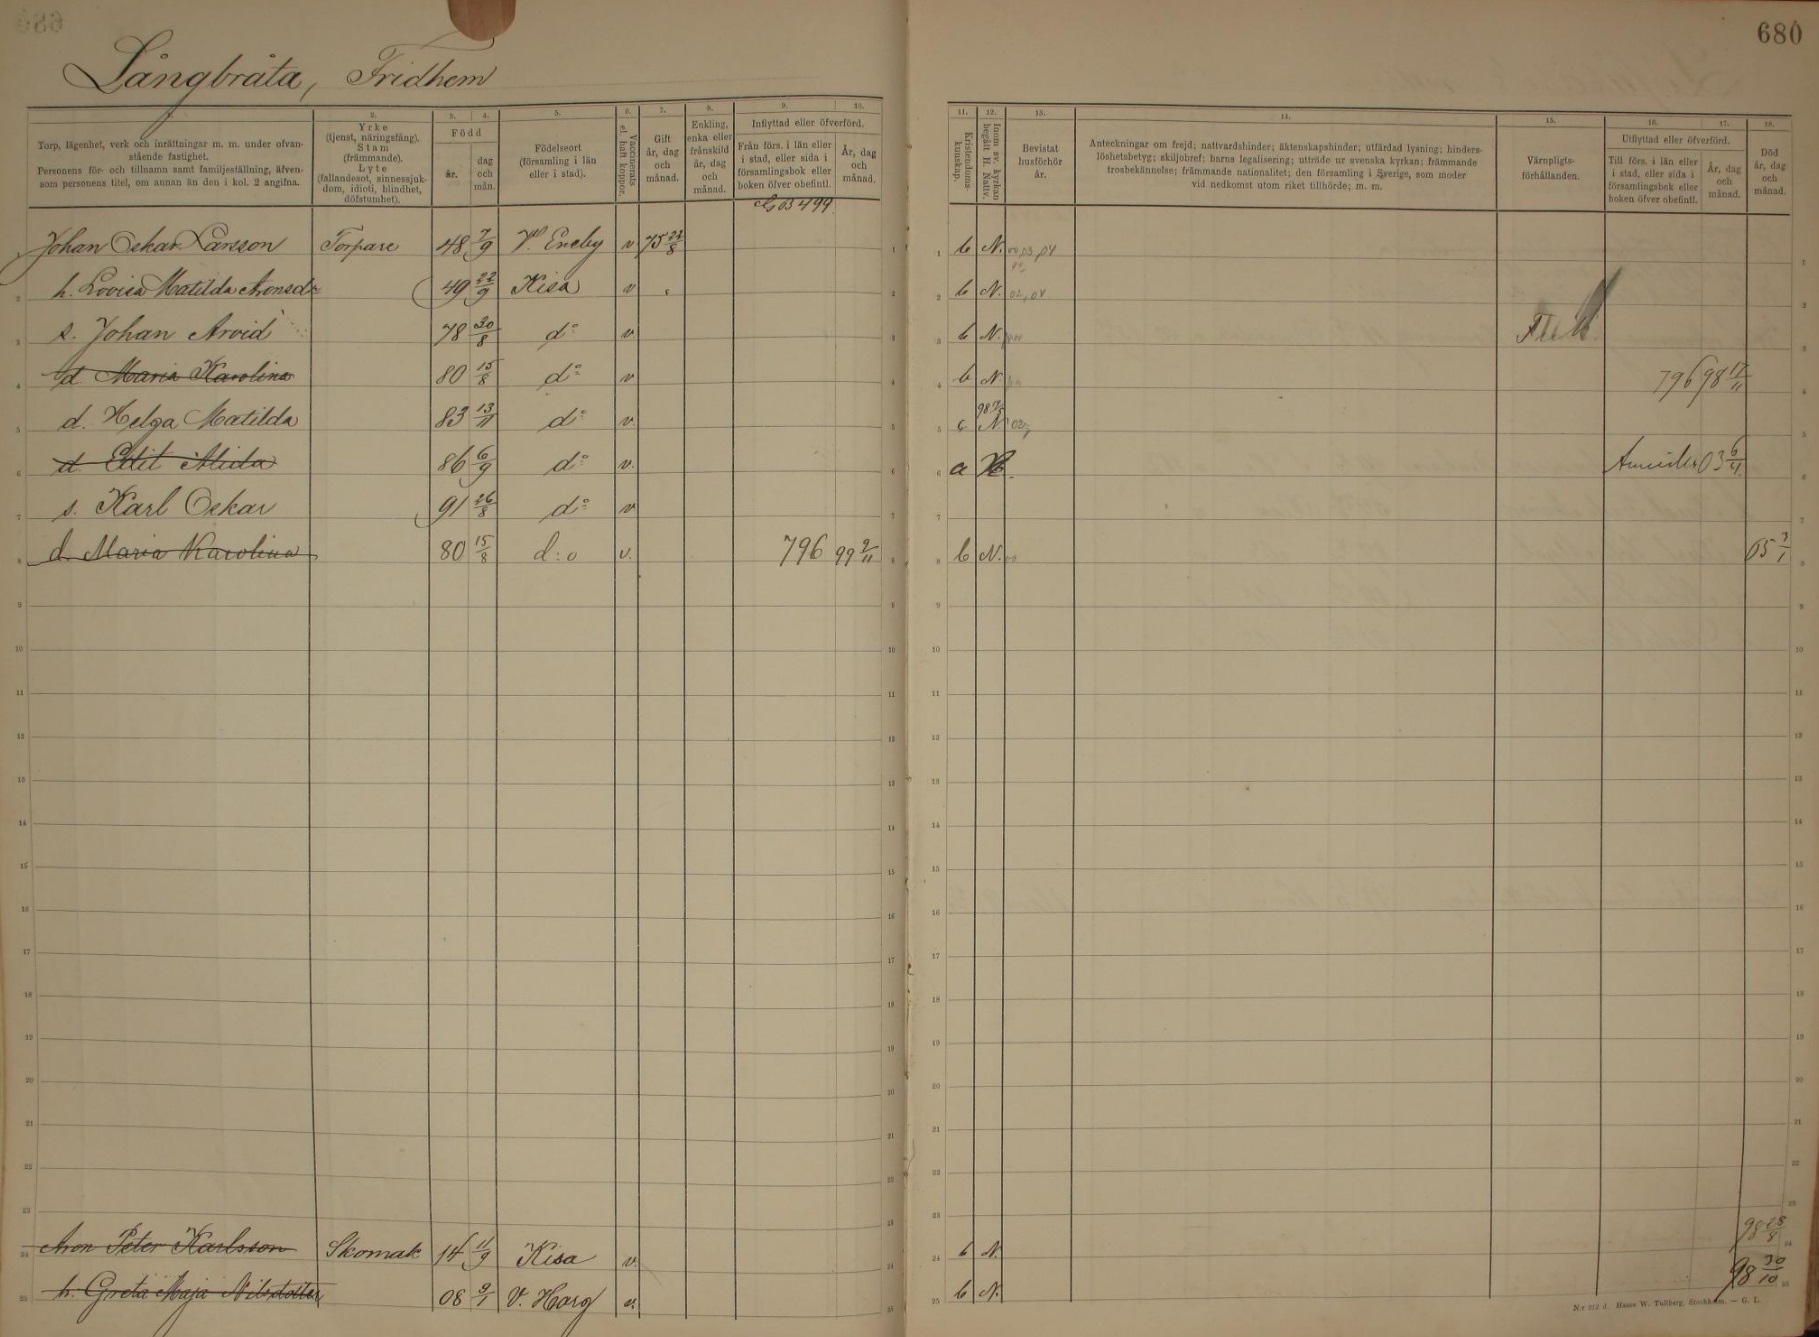 680
Långbråta, Fridhem
1. 2. 3. 4. 5. 6. 7. 8. 9. 10.
Torp, lägenhet, verk och inrättningar m. m. under ofvan-
stående fastighet.
Personens för- och tillnamn samt familjeställning, äfven-
som personens titel, om annan än den i kol. 2 angifna.
Yrke
(tjenst, näringsfång).
Stam
(främmande).
Lyte
(fallandesot, sinnessjuk-
dom, idioti, blindhet,
döfstumhet).
Född
år.
dag
och
mån.
Födelseort
(församling i län
eller i stad).
Vaccinerats
el. haft koppor.
Gift
år, dag
och
månad.
Enkling,
enka eller
frånskild
år, dag
och
månad.
Inflyttad eller öfverförd.
Från förs. i län eller
i stad, eller sida i
församlingsbok eller
boken öfver obefintl.
År, dag
och
månad.
11. 12. 13. 14. 15. 16. 17. 18.
Kristendoms-
kunskap.
Inom sv. kyrkan
begått H. Nattv.
Bevistat
husförhör
år.
Anteckningar om frejd; nattvardshinder; äktenskapshinder; utfärdad lysning; hinders-
löshetsbetyg; skiljobref; barns legalisering; utträde ur svenska kyrkan; främmande
trosbekännelse; främmande nationalitet; den församling i Sverige, som moder
vid nedkomst utom riket tillhörde; m. m.
Värnpligts-
förhållanden.
Utflyttad eller öfverförd.
Till förs. i län eller
i stad, eller sida i
församlingsbok eller
boken öfver obefintl.
År, dag
och
månad.
Död
år, dag
och
månad.
GB 499
Johan Oskar Larsson Torpare 48 7/9 V. Eneby v 75 23/8 b N. 00,03,04
h. Lovisa Matilda Aronsdr 49 22/9 Kisa v b N. 02,04
s. Johan Arvid 78 30/8 d:o v b N.
d. Maria Karolina 80 15/8 d:o v b N. 796 98 17/11
d. Helga Matilda 83 13/11 d:o v. c N. 02
d. Edit Alida 86 6/9 d:o v. a 03 6/4
s. Karl Oskar 91 26/8 d:o v
d. Maria Karolina 80 15/8 d:o v. 796 99 9/11 b N. 05 3/1
Aron Peter Karlsson Skomak 14 11/9 Kisa v. b N. 98 28/8
h. Greta Maja Nilsdotter 08 9/1 V. Harg v. b N. 98 30/10
N:r 212 d. Hasse W. Tullberg, Stockholm. — G. L.